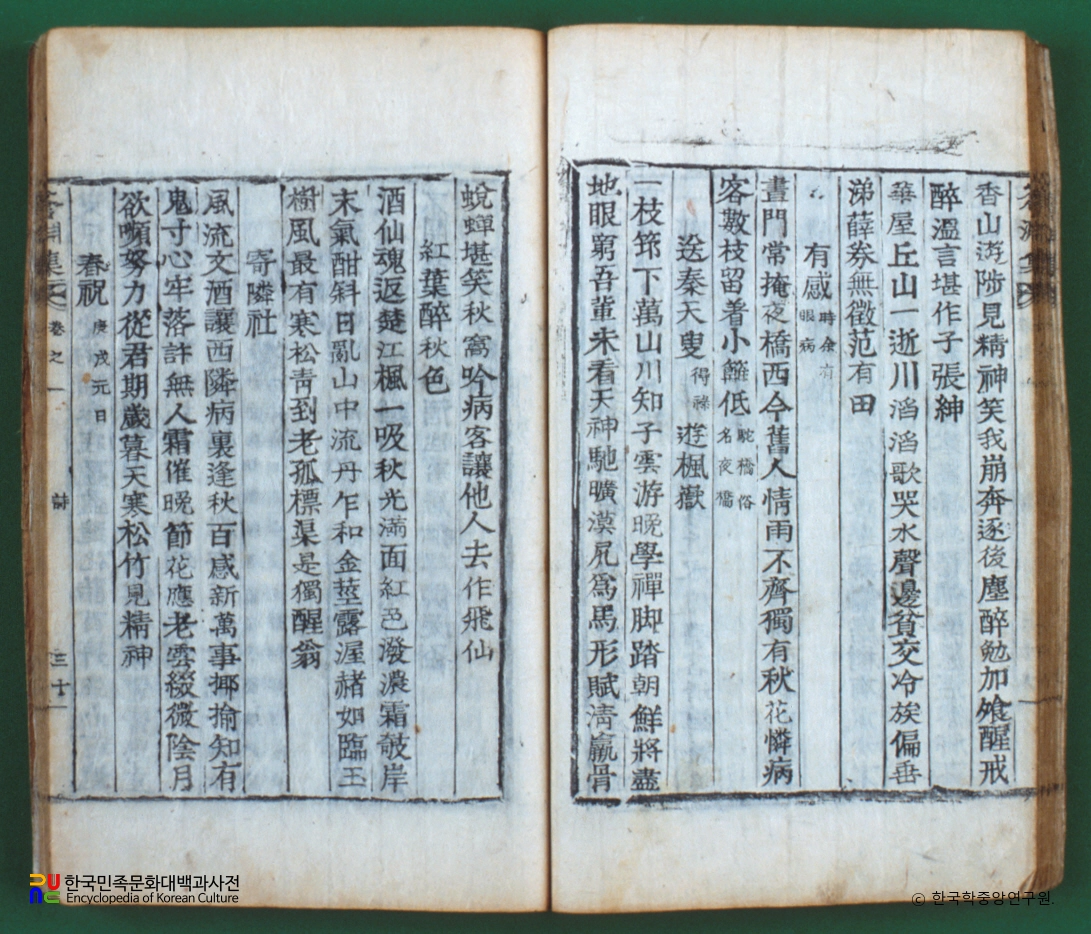 香山遊陟見精神笑我崩奔逐後塵醉勉加飧醒戒
醉溫言堪作子張紳
華屋丘山一逝川滔滔歌哭水聲邊貧交冷族偏垂
涕薛券無徵范有田
有感 時余有眼病
晝門常掩夜橋西今舊人情雨不齊獨有秋花憐病
客數枝留着小籬低 駝橋俗名夜橋
送秦天叟 得祿 遊楓嶽
一枝筇下萬山川知子雲游晚學禪脚踏朝鮮將盡
地眼窮吾輩未看天神馳曠漠尻爲馬形賦淸羸骨
蛻蟬堪笑秋窩吟病客讓他人去作飛仙
紅葉醉秋色
酒仙魂返楚江楓一吸秋光滿面紅邑潑濃霜攲岸
末氣酣斜日亂山中流丹乍和金莖露渥赭如臨玉
樹風最有寒松靑到老孤標渠是獨醒翁
寄隣社
風流文酒讓西隣病裏逢秋百感新萬事揶揄知有
鬼寸心牢落許無人霜催晚節花應老雲綴微陰月
欲嚬努力從君期歲暮天寒松竹見精神
春祝 庚戌元日
集 卷之一 詩 三十一
한국민족문화대백과사전
Encyclopedia of Korean Culture
© 한국학중앙연구원.